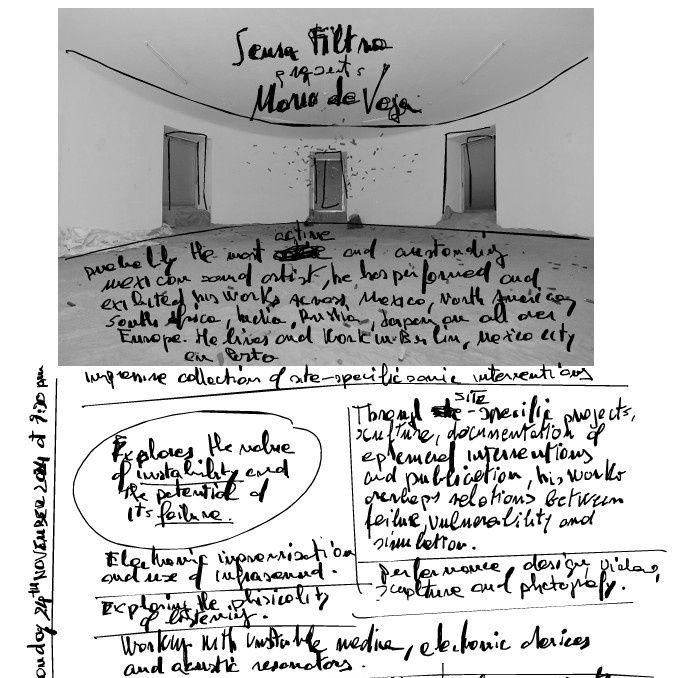 Senza Filtro
presents
Mario de Vega
active
probably the most and oustanding
mexican sound artist, he has performed and
exibited his works across, Mexico, North America,
South Africa, India, Russia, Japan and all over
Europe. He lives and work in Berlin, Mexico city
impressive collection of site-specific sonic interventions
Monday 24th NOVEMBER 2014 at 9:30 pm
Explores the value
of instability and
the potential of
its failure.
SITE
Through -specific projects,
sculture, documentation of
ephemeral interventions
and publication, his works
relations between
failure, vulnerability and
simulation.
Electronic improvvisation
and use of infrasound.
Exploring the phisicality
of listening.
performance, design, video,
sculpture and photografy.
Working with unstable media, electronic devices
and acustic resonators.